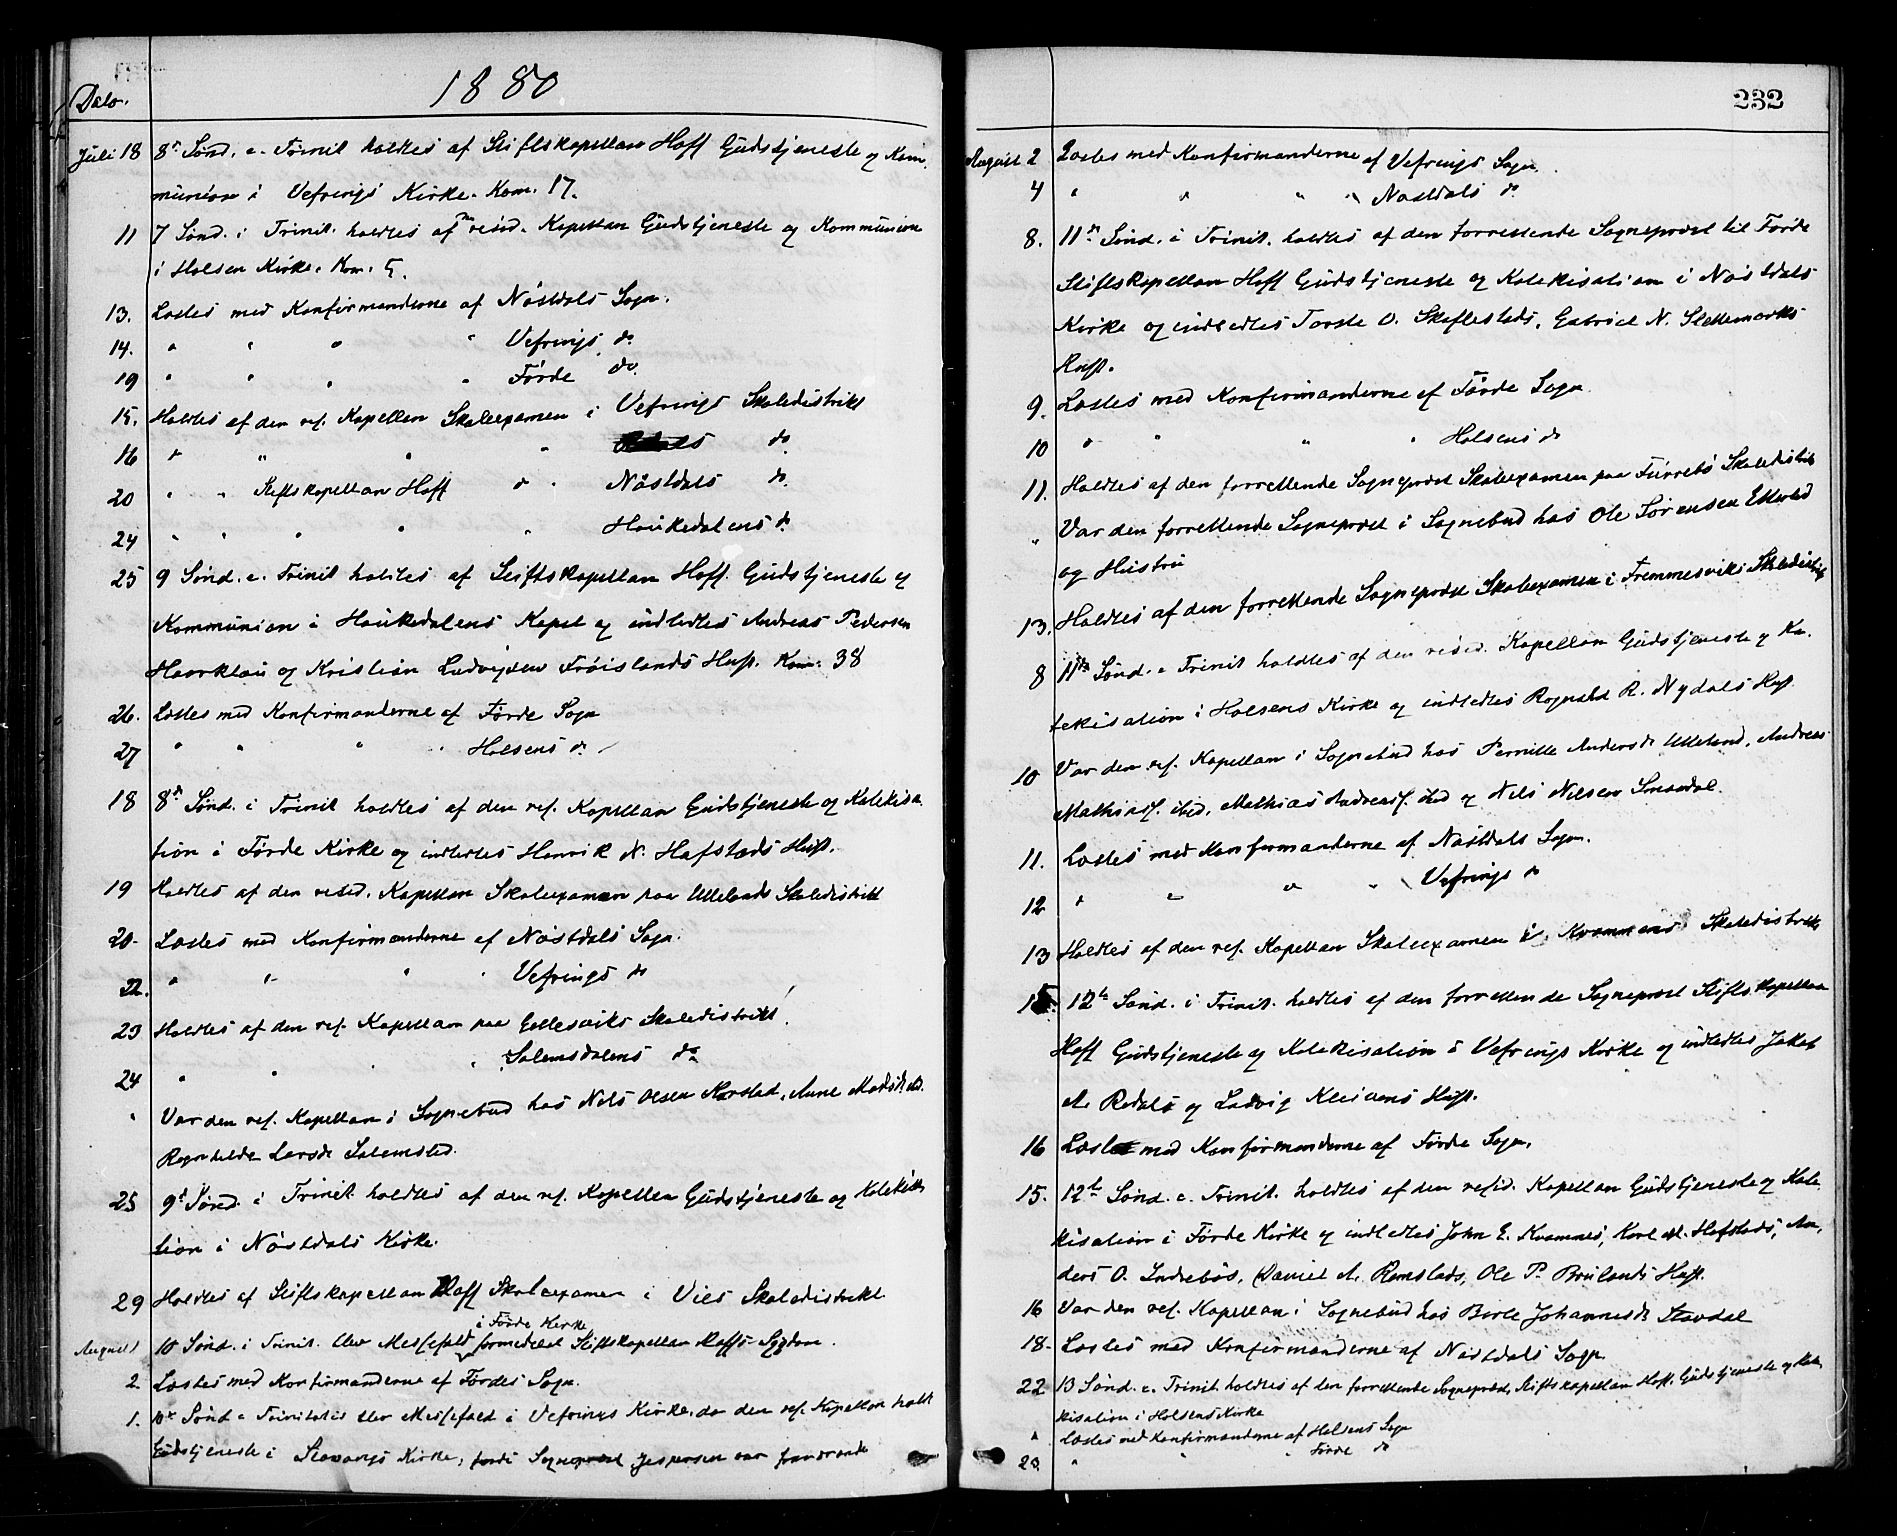 Dato.
1880
Juli 18 8de Sønd. e. Trinit holdtes af Stiftskapellan Hoff Gudstjeneste og Kom-
munion i Vefrings Kirke. Kom. 17.
11 7 Sønd. i Trinit. holdtes af resid. Kapellan Gudstjeneste og Kommunion
i Holsen Kirke. Kom. 5.
13. Læstes med Konfirmanderne af Nøstdals Sogn.
14. " " " " Vefrings do
19 " " " " Førde do.
15. Holdtes af den res. Kapellan Skoleexamen i Vefrings Skoledistrikt
16 " " " " do.
20 " " Stiftskapellan Hoff " " Nøstdals do.
24 " " " " Houkedalens do
25 9 Sønd. e. Trinit holdtes af Stiftskapellan Hoff Gudstjeneste og
Kommunion i Houkedalens Kapel og indledtes Andreas Pedersen
Haarklau og Kristian Ludvigsen Frøislands Hust. Kom. 38
26. Læstes med Konfirmanderne af Førde Sogn
27 " " " " Holsens do
18 8de Sønd. i Trinit holdtes af den res. Kapellan Gudstjeneste og Katekisa-
tion i Førde Kirke og indledtes Henrik N. Hafstads Hust.
19 Holdtes af den resid. Kapellan Skoleexamen paa Ullelands Skoledistrikt
20. Læstes med Konfirmanderne af Nøstdals Sogn.
22. " " " " Vefrings do
23 Holdtes af den res. Kapellan paa Skoledistrikt
24 " " " " Solemsdalens do
" Var den res. Kapellan i Sognebud hos Nils Olsen Anne
Ragnhilde Larsdr Solemsted.
25 9d Sønd. i Trinit holdtes af den res. Kapellan Gudstjeneste og Katekisa-
tion i Nøstdals Kirke.
29 Holdtes af Stiftskapellan Hoff Skoleexamen i Vies Skoledistrikt
i Førde Kirke
August 1 10 Sønd. i Trinit. blev Messefald formedelst Stiftskapellan Hoffs Sygdom.
2. Læstes med Konfirmanderne af Førdes Sogn.
1. 10de Sønd e Trinitatis blev Messefald i Vefrings Kirke, da den res. Kapellan holdt
Gudstjeneste i Stavangs Kirke, fordi Sogneprest Jespersen var fraværende
232
August 2 Læstes med Konfirmanderne af Vefrings Sogn.
4 " " " " Nøstdals do
8. 11te Sønd. i Trinit. holdtes af den forrettende Sogneprest til Førde
Stiftskapellan Hoff Gudstjeneste og Katekisation i Nøstdals
Kirke og indledtes O. Gabriel N. Slettemarks
Hust.
9. Læstes med Konfirmanderne af Førde Sogn
10 " " " " Holsens do
11. Holdtes af den forrettende Sogneprest Skoleexamen paa Skoledistrikt
" Var den forrettende Sogneprest i Sognebud hos Ole Sørensen
og Hustru
13. Holdtes af den forrettende Sogneprest Skoleexamen i Skoledistrikt
8 11te Sønd. e Trinit holdtes af den resid. Kapellan Gudstjeneste og Ka-
tekisation i Holsens Kirke og indledtes Rognald R. Nydals Hust
10 Var den res. Kapellan i Sognebud hos Pernille Andersdr Ulleland, Andreas
Mathias. ibid, Mathias Andreas. ibid og Nils Nilsen
11. Læstes med Konfirmanderne af Nøstdals Sogn.
12 " " " " Vefrings do
13 Holdtes af den res. Kapellan Skoleexamen i Kvammens Skoledistrikt
15. 12te Sønd. i Trinit. holdtes af den forrettende Sogneprest Stiftskapellan
Hoff Gudstjeneste og Katekisation i Vefrings Kirke og indledtes Jakob
A. Redals og Ludvig Hust.
16 Læstes med Konfirmanderne af Førde Sogn.
15. 12te Sønd. e. Trinit. holdtes af den resid. Kapellan Gudstjeneste og Kate-
kisation i Førde Kirke og indledtes John E. Kvamnes, Karl M. Hafstads, An-
ders O. Indrebøs, Daniel A. Ramstads, Ole P. Brulands Hust.
16 Var den res. Kapellan i Sognebud hos Borte Johannesdr Stavdal
18. Læstes med Konfirmanderne af Nøstdals Sogn.
22 13 Sønd. e. Trinit. holdtes af den forrettende Sogneprest, Stiftskapellan Hoff, Gudstjeneste og Kate-
kisation i Holsens Kirke
" Læstes med Konfirmanderne af Holsens Sogn
23. " " Førde do